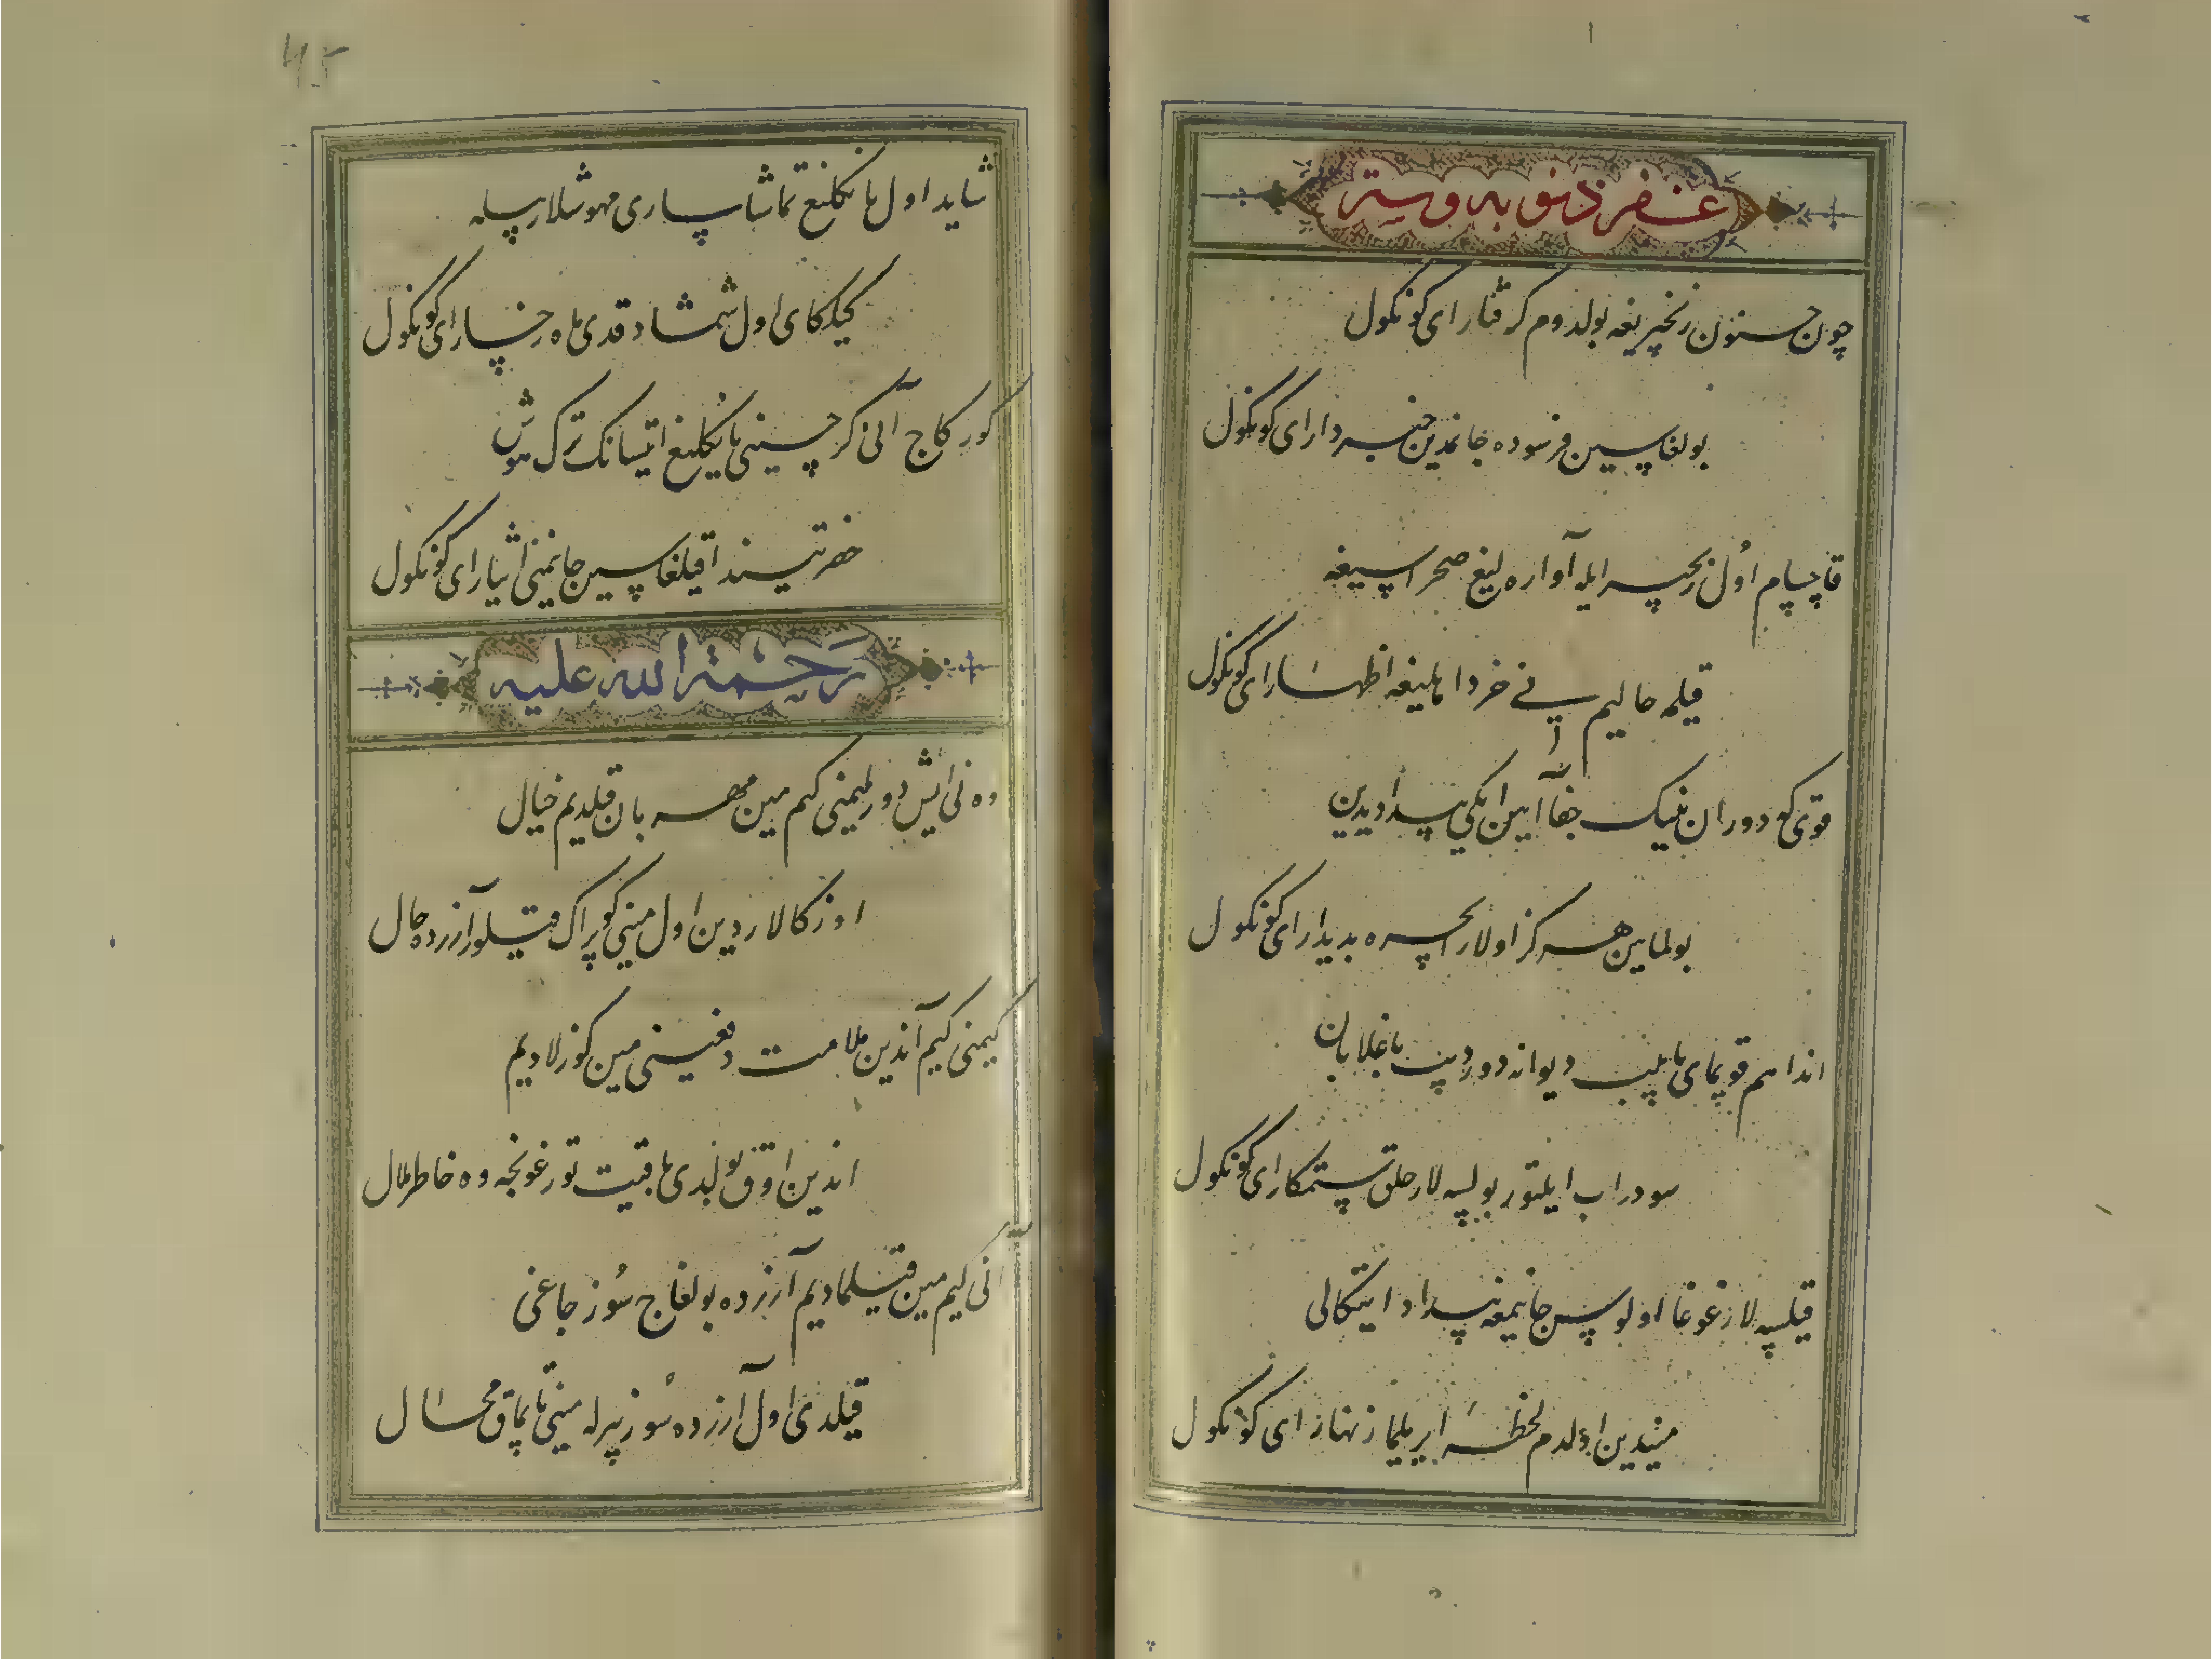 غفر ذنوبه و ستر
چون جنون زنجیریغه بولدوم گرفتار ای کونکول
بولغاسین فرسوده جانمدین خبردار ای کونکول
قاچسام اول زنجیر ایله آواره لیغ صحراسیغه
قیلمه حالیم نی خرد اهلیغه اظهار ای کونکول
قوی کو دوران نینک جفا آیین ایکی بیدادیدین
بولماین هرگز اولار بهره بدیدار ای کونکول
اندا هم قویمای تاپیب دیوانه دوردیب باغلابان
سودراب ایلتور بولسه لار خلق ستمکار ای کونکول
قیلسه لار غوغا اولوس جانیمغه بیداد ایتکالی
میندین اولدم لحظه ایریلما زنهار ای کونکول
شاید اول یانکلیغ تماشا ساری مهوشلار بیله
کیلکای اول شمشاد قدی ماه رخسار ای کونکول
کورکاج آنی کرچه سینی یانکلیغ ایتسانک ترک هوش
حضرتیسندا قیلغاسین جانیمنی ایثار ای کونکول
رحمة الله علیه
وه نی ایش دورلیمینی کیم مین مهربان قیلدیم خیال
اوزکالاردین اول مینی کوپراک قیلور آزرده حال
کیمنی کیم آندین ملامت دفعینی مین کوزلادیم
اندین اوق بولدی عاقبت تورغونجه وه خاطر ملال
آنی کیم مین قیلمادیم آزرده بولغاج سوز چاغی
قیلدی اول آزرده سوز بیرله مینی تاپماق محال